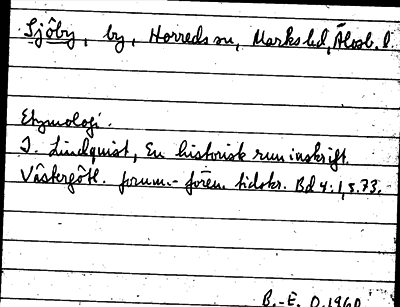 Sjöby, by, Horreds sn, Marks hd, Älvsb. l.
Etymologi.
I. Lindquist, En historisk runinskrift.
Västergötl. fornm.- fören. tidskr. Bd 4:1, s. 73.
B.-E. O. 1960